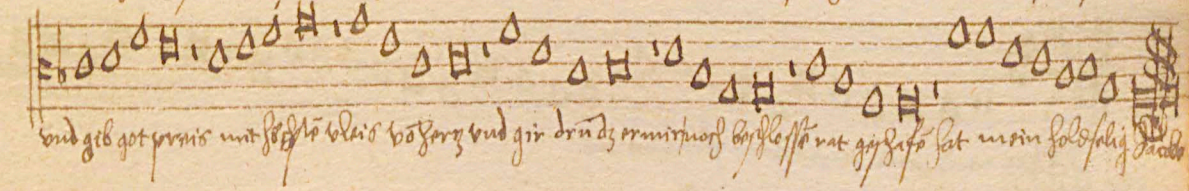 vnd gib got preis mit höchstē vleis vō herz vnd gir drū dz er mir noch beschlossē rat geschafē hat mein holdselig